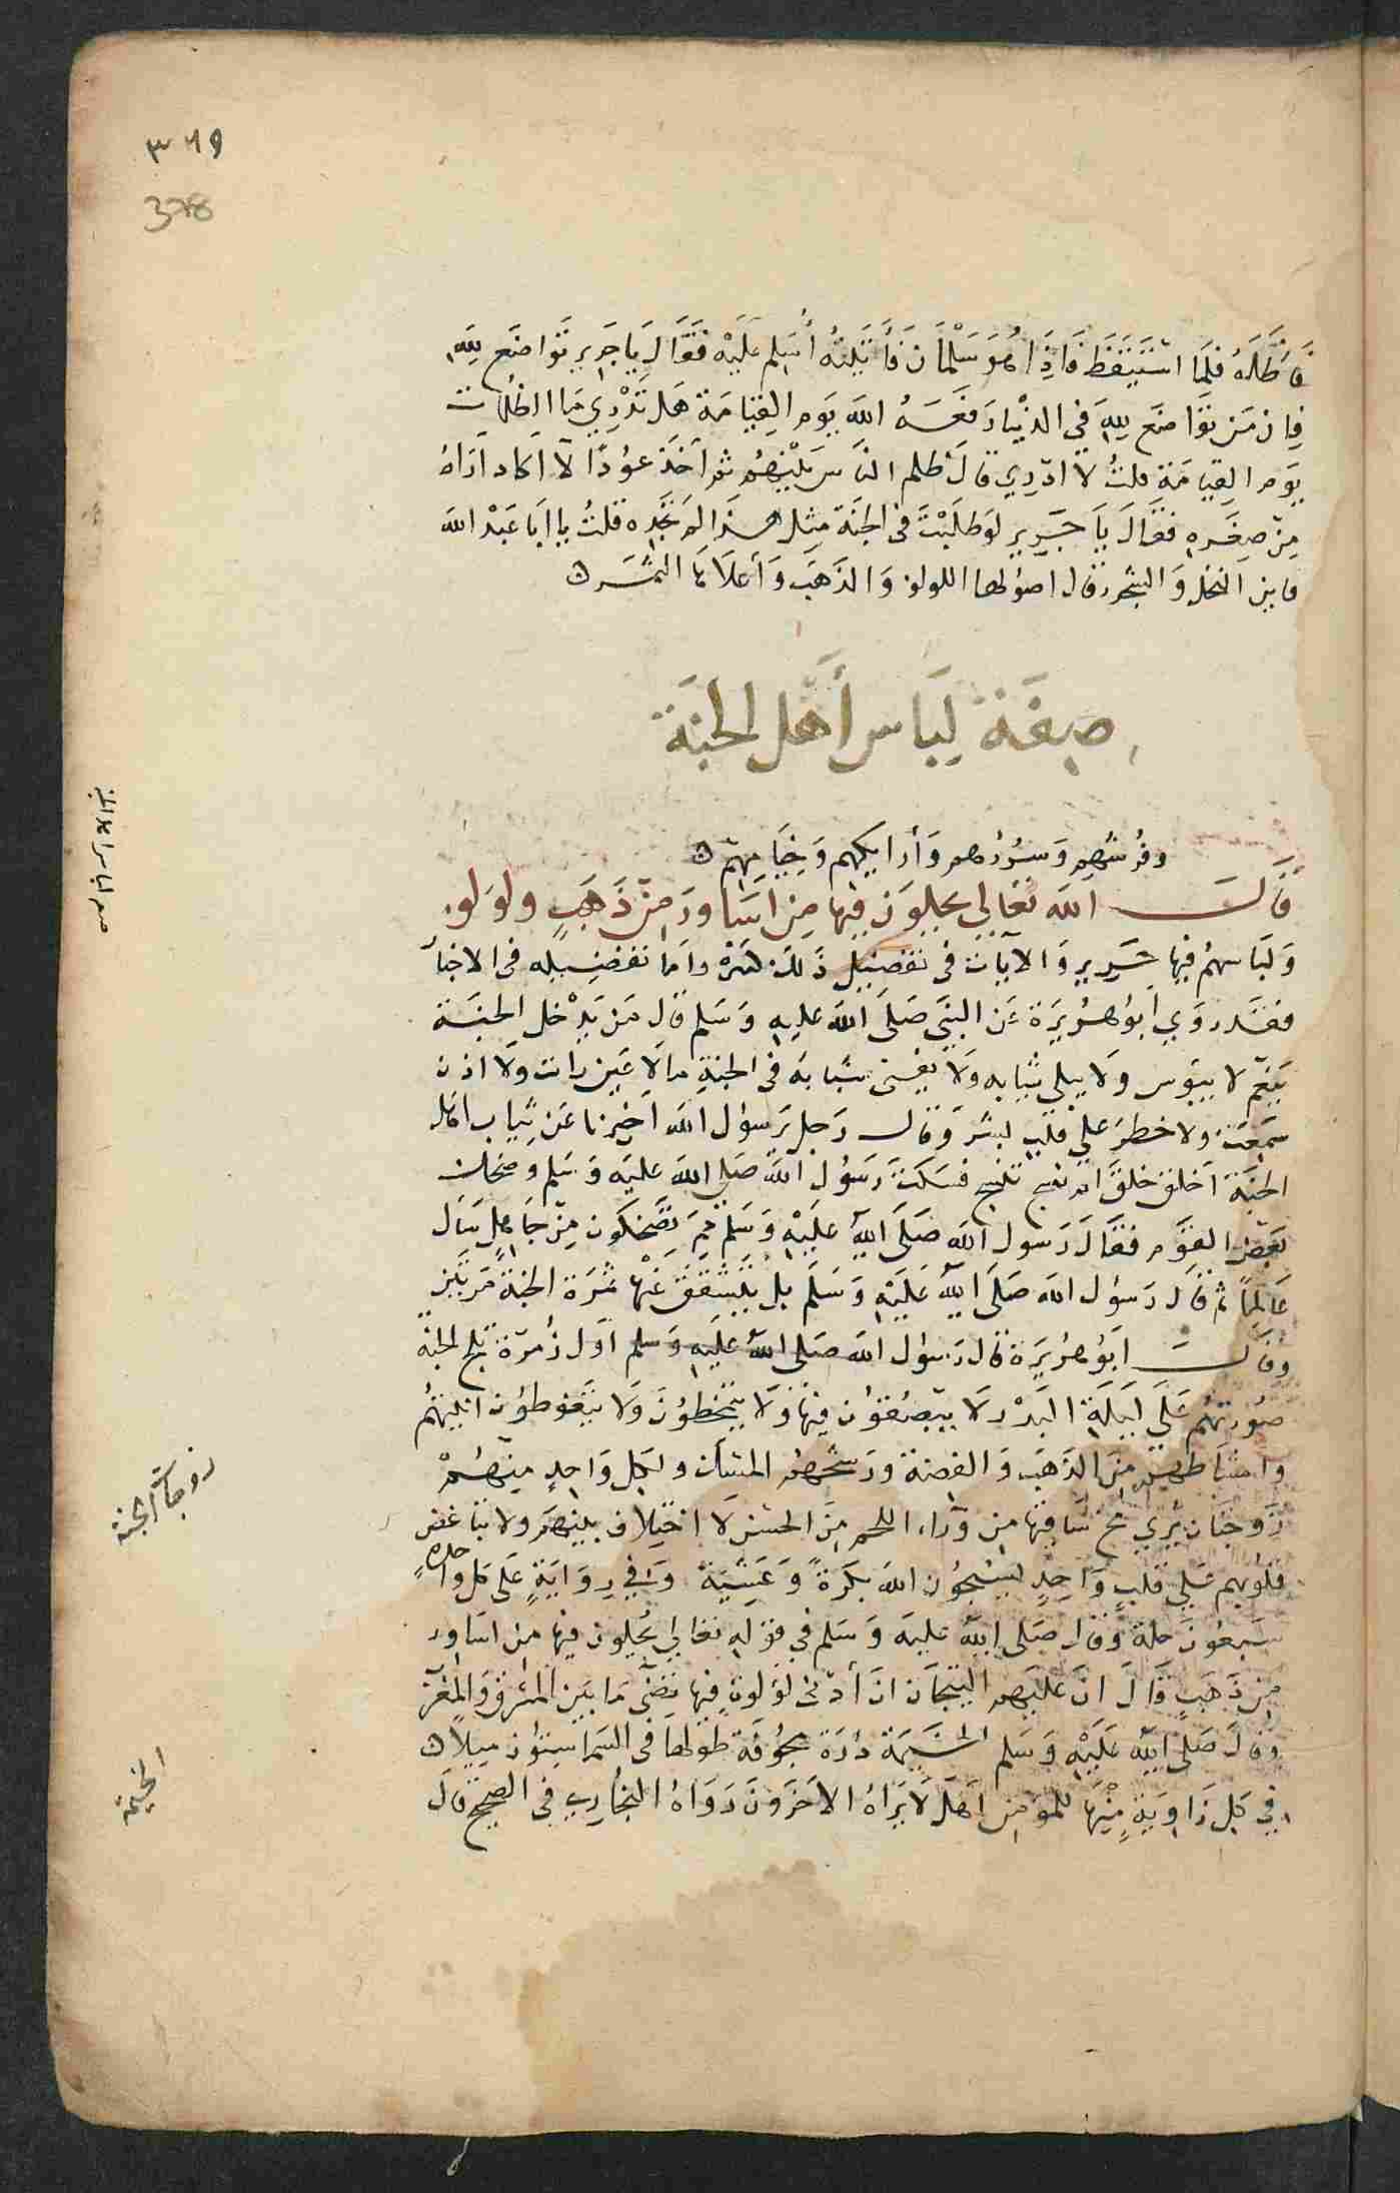 ٣٦٩
378
فاظله فلما استيقظ فاذا هو سلمان فأتيته أسلم عليه فقال يا جرير تواضع لله
فان من تواضع لله في الدنيا رفعه الله يوم القيامة هل تدري ما الظلمات
يوم القيامة قلت لا ادري قال ظلم الناس بينهم ثم أخذ عودا لا اكاد اراه
من صغره فقال يا جرير لو طلبت في الجنة مثل هذا لم تجده قلت يا ابا عبد الله
فاين النخل والشجر قال اصولها اللولو والذهب وأعلاها الثمر
صفة لباس أهل الجنة
وفرشهم وسررهم وأرايكهم وخيامهم
قال الله تعالى يحلون فيها من اساور من ذهب ولولو
ولباسهم فيها حرير والآيات في تفصيل ذلك كثرة واما تفضيله في الاخبا
فقد روي ابو هريرة عن النبي صلى الله عليه وسلم قال من يدخل الجنة
ينعم لا يبوس ولا يبلى ثيابه ولا يفنى شبابه في الجنة ما لا عين رات ولا اذن
سمعت ولا خطر علي قلب بشر وقال رجل يرسول الله اخبرنا عن ثياب اهل
الجنة اخلق خلق ام نسج تنسج فسكت رسول الله صلى الله عليه وسلم وضحك
بعض القوم فقال رسول الله صلى الله عليه وسلم مم تضحكون من جاهل سال
عالما ثم قال رسول الله صلى الله عليه وسلم بل يتشقق عنها ثمرة الجنة مرتين
وقال ابو هريرة قال رسول الله صلى الله عليه وسلم اول زمرة تلج الجنة
صورتهم على ليلة البدر لا يبصقون فيها ولا يتمخطون ولا يتغوطون انيتهم
وامشاطهم من الذهب والفضة ورشحهم المسك ولكل واحد منهم
زوجتان يري مخ ساقها من وراء اللحم من الحسن لا اختلاف بينهم ولا تباغض
قلوبهم علي قلب واحد يسبحون الله بكرة وعشية وفي رواية على كل واحدة
سبعون حلة وقال صلى الله عليه وسلم في قوله تعالي يحلون فيها من اساور
من ذهب قال ان عليهم التيجان ان أدنى لؤلوة فيها تضي ما بين المشرق والمغرب
وقال صلى الله عليه وسلم الخيمة درة مجوفة طولها في السما ستون ميلا
في كل زاوية منها للمومن اهل لا يراه الآخرون رواه البخاري في الصحيح قال
صفة لباس اهل الجنة
زوجات الجنة
الخيمة